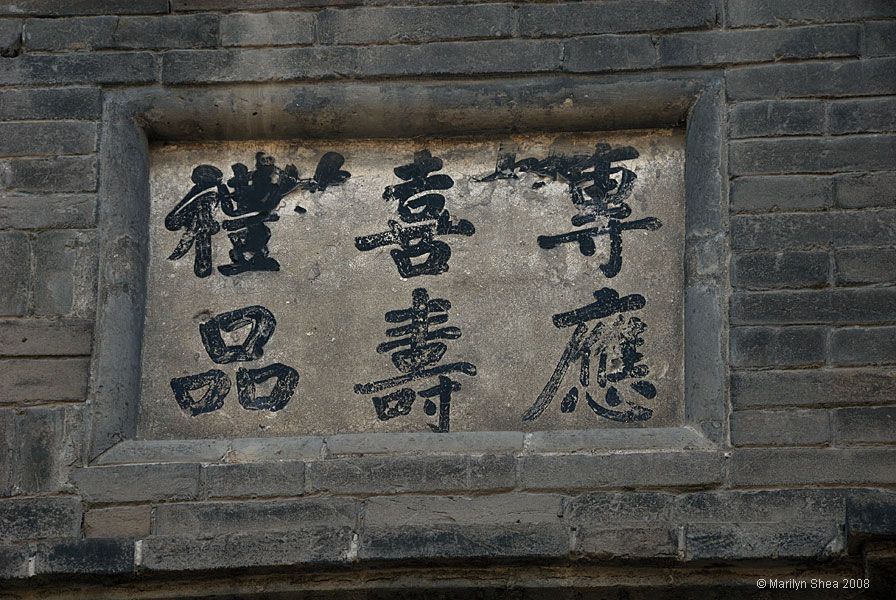 專應
喜壽
禮品
© Marilyn Shea 2008